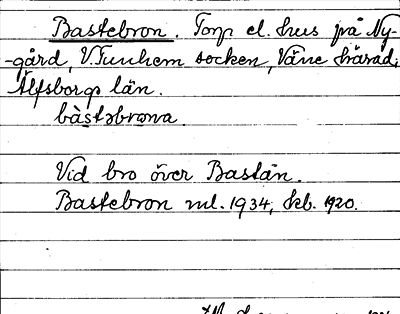 Bastebron. Torp el. hus på Ny-
-gård, V. Tunhem socken, Väne härad,
Älfsborgs län.
bàstəbrωna.
Vid bro över Bastån.
Bastebron ml. 1934, kb. 1920.